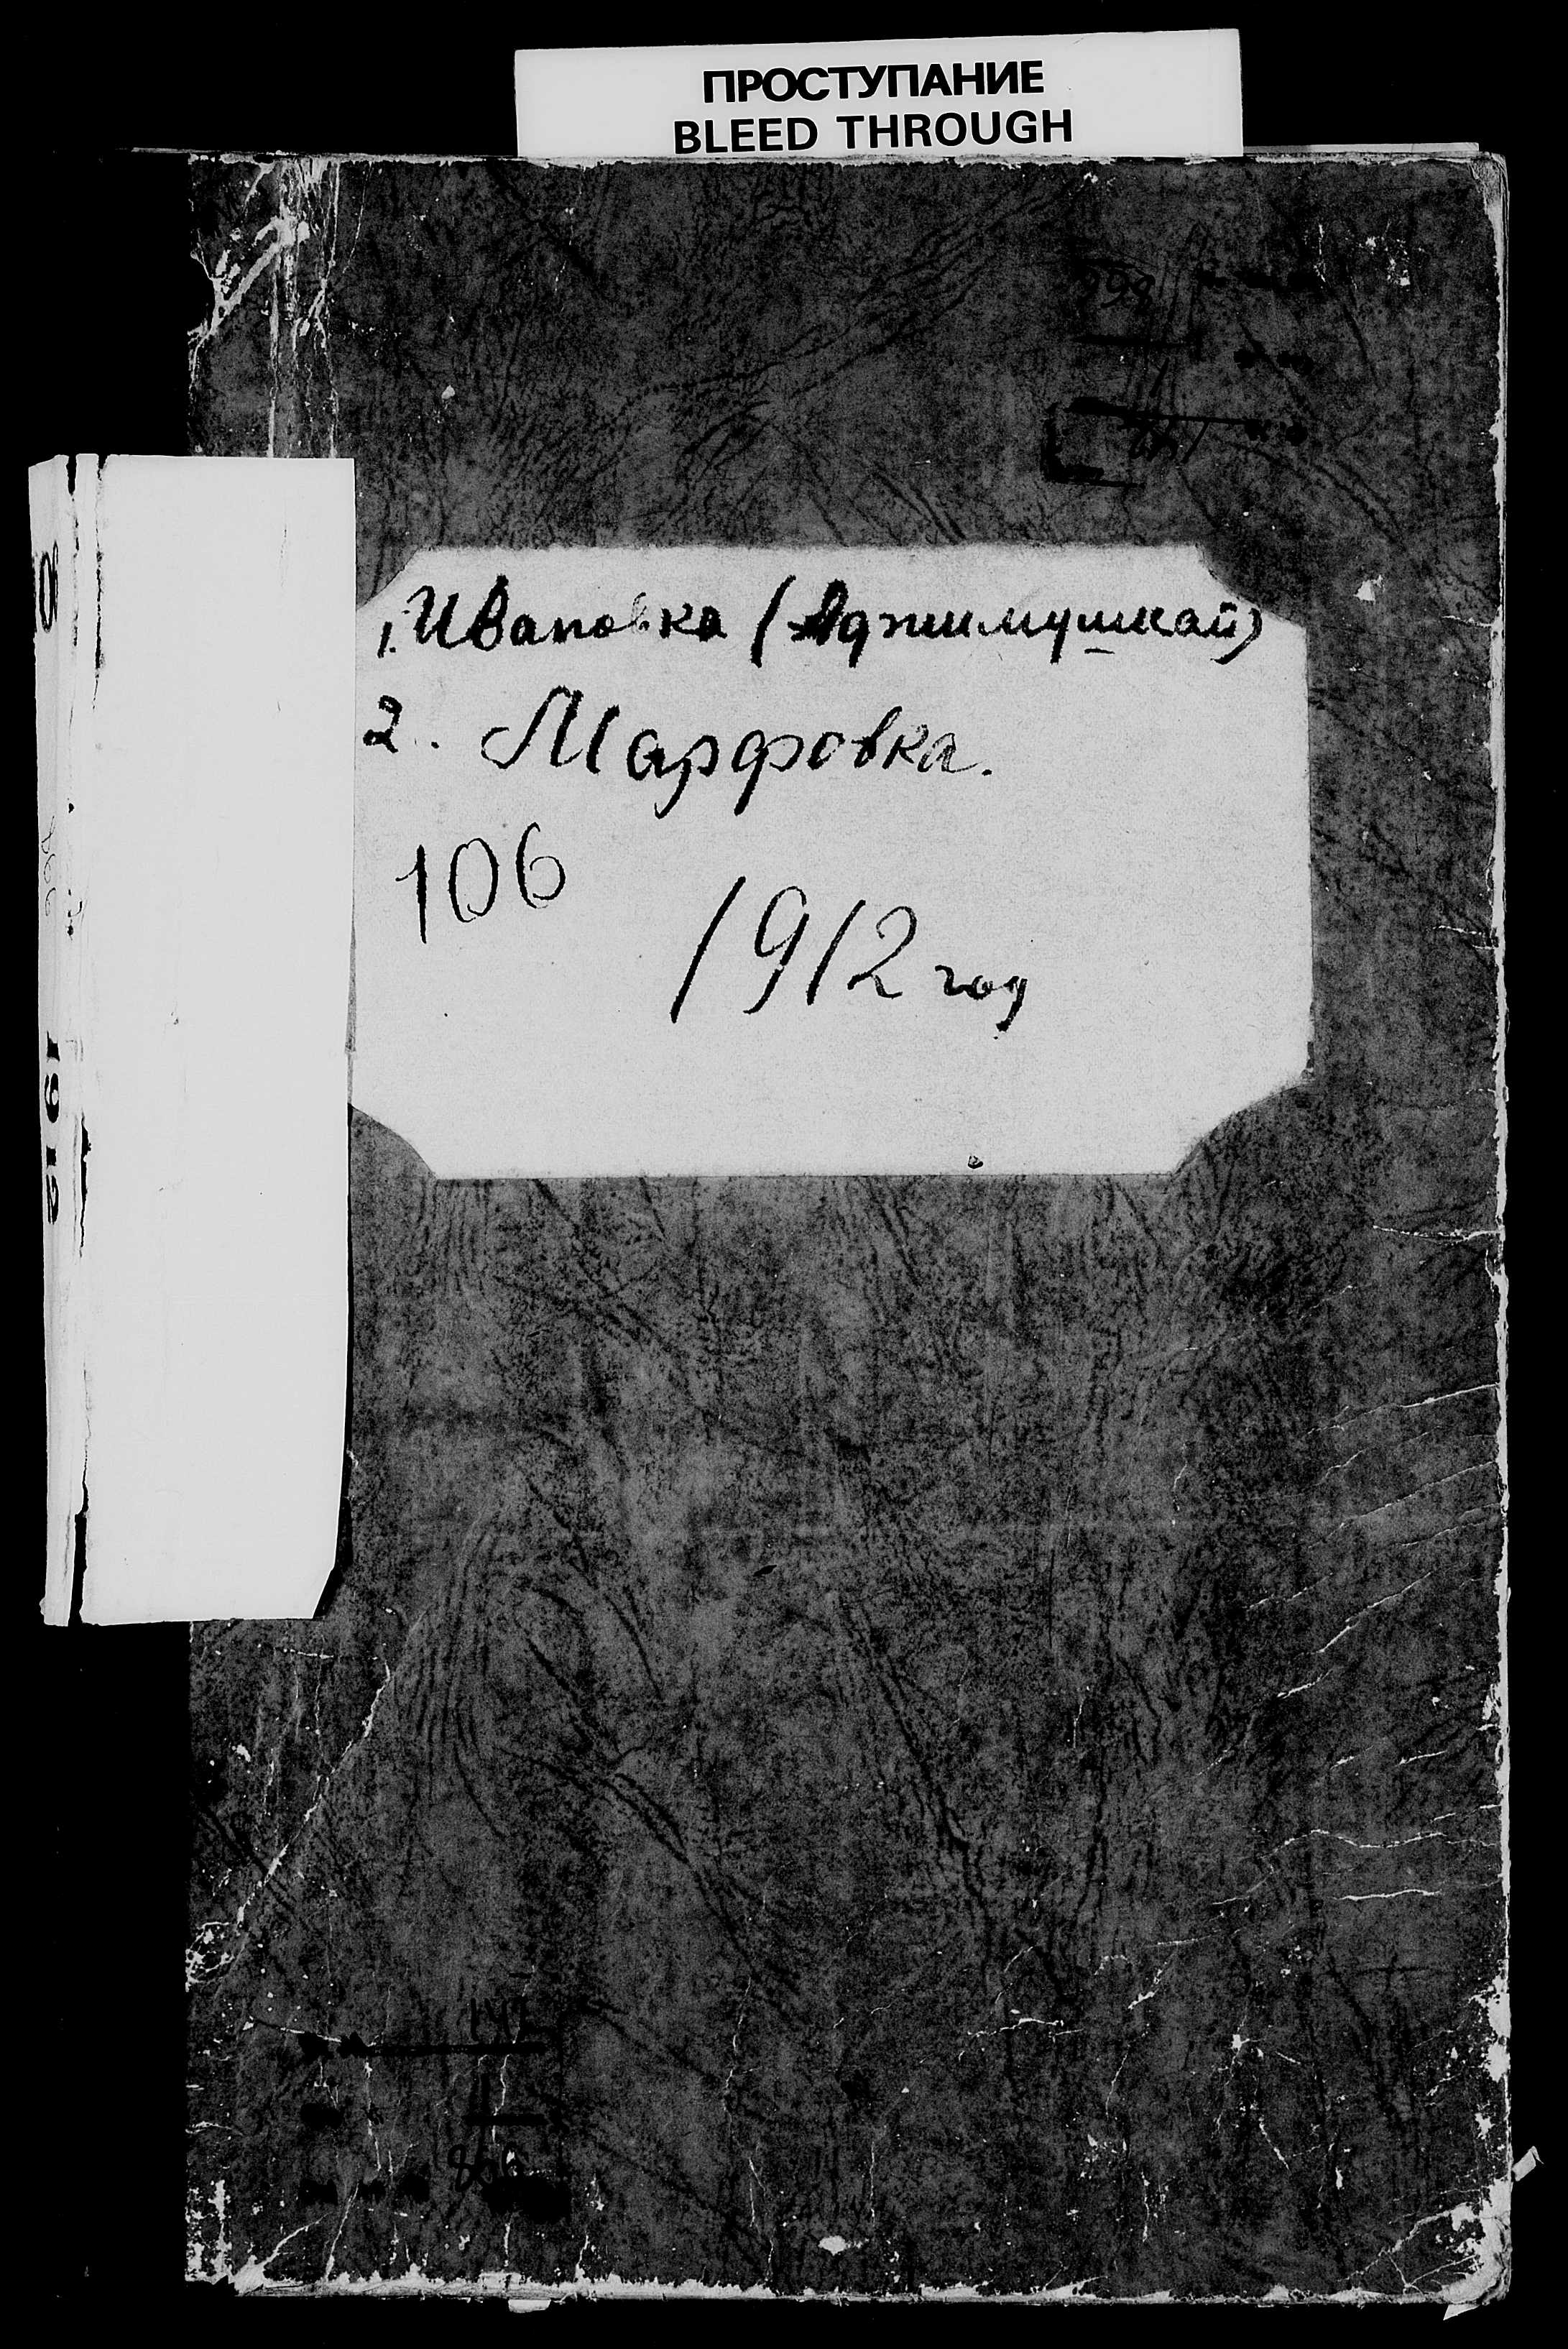 ПРОСТУПАНИЕ
BLEED THROUGH
1. Ивановка (Аджимушкай)
2. Марфовка.
106
1912 год
1912